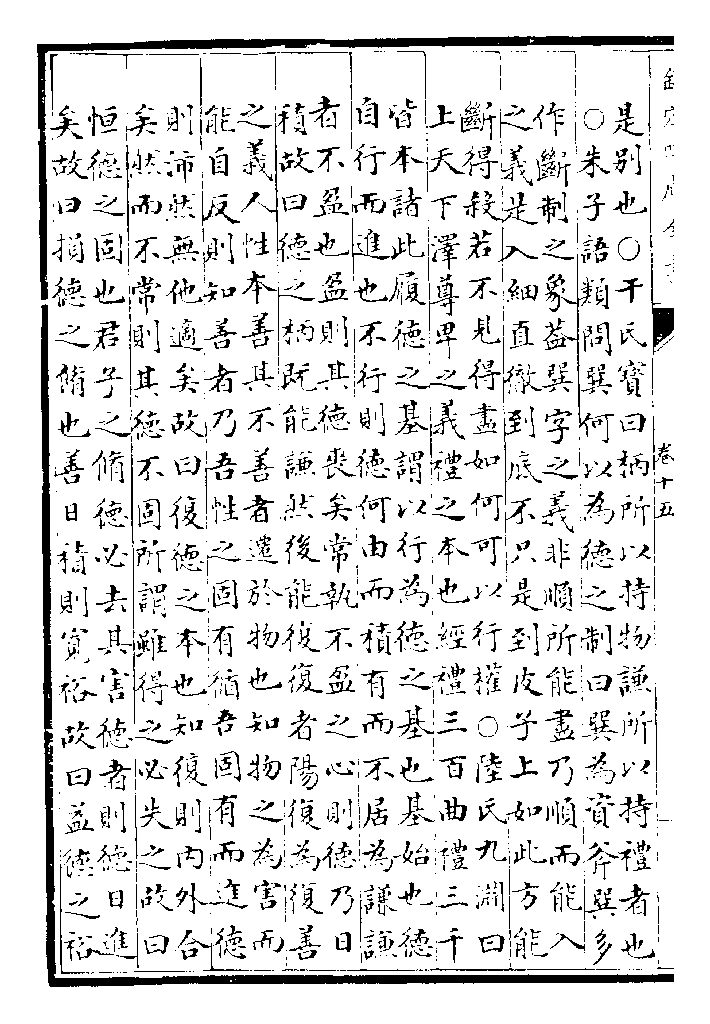 卷十五
是别也○干氏寶曰柄所以持物謙所以持禮者也
○朱子語類問巽何以為德之制曰巽為資斧巽多
作斷制之象葢巽字之義非順所能盡乃順而能入
之義是入細直徹到底不只是到皮子上如此方能
斷得殺若不見得盡如何可以行權○陸氏九淵曰
上天下澤尊卑之義禮之本也經禮三百曲禮三千
皆本諸此履德之基謂以行為德之基也基始也德
自行而進也不行則德何由而積有而不居為謙謙
者不盈也盈則其德喪矣常執不盈之心則德乃日
積故曰德之柄既能謙然後能復復者陽復為復善
之義人性本善其不善者遷於物也知物之為害而
能自反則知善者乃吾性之固有循吾固有而進德
則沛然無他適矣故曰復德之本也知復則内外合
矣然而不常則其德不固所謂雖得之必失之故曰
恒德之固也君子之脩德必去其害德者則德日進
矣故曰損德之脩也善日積則寛裕故曰益德之裕